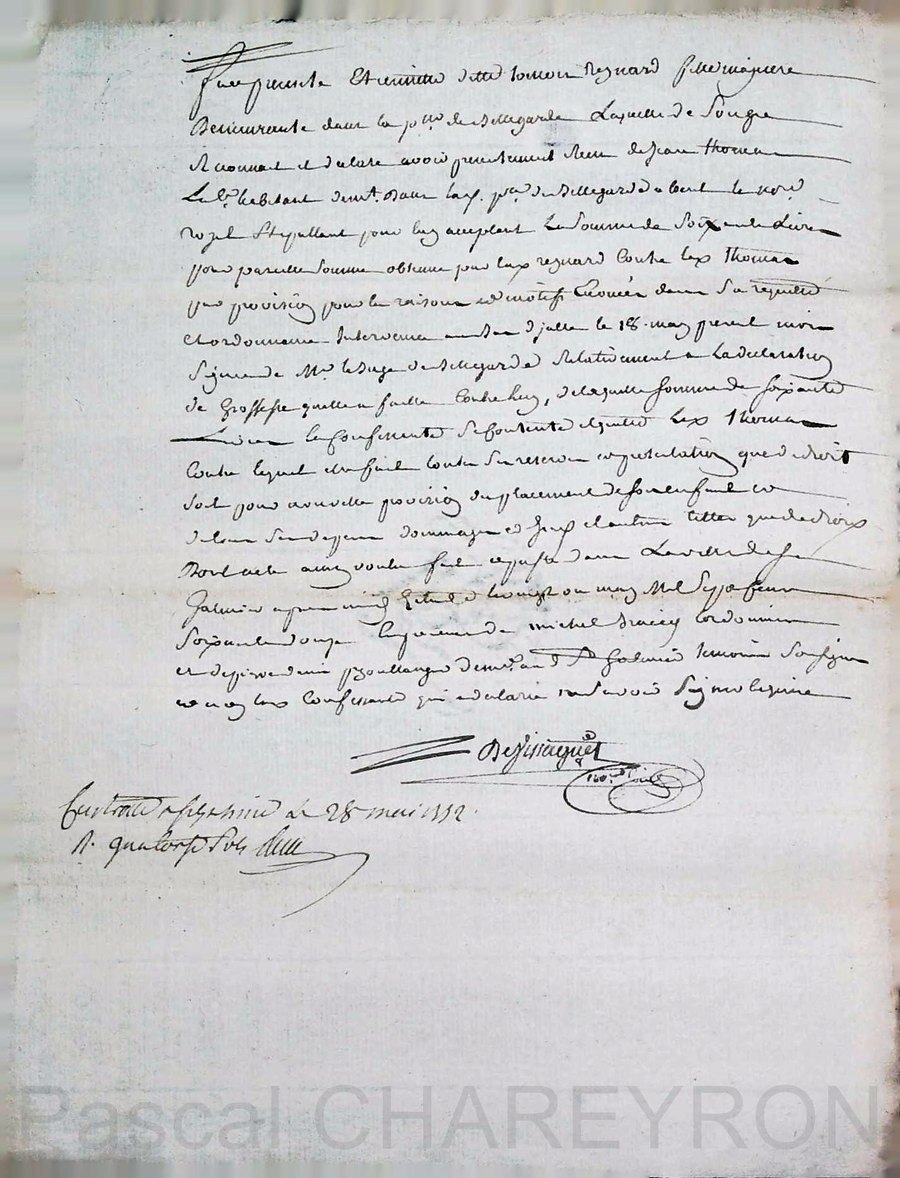 fut presente Etiennette ditte toinon Regnard fille majeure
Demeurante dans la p.sse de Bellegarde Laquelle de Son gre
Reconnait et declare avoir presentement Receu de Jean thomas
Lab.r habitant Dem.t Dans lad. p.sse de Bellegarde absent le no.re
Stipullant pour luy acceptant La Somme de Soixante Livres
pour pareille Somme obtenue par lad. regnard Contre led. thomas
par provision pour les raisons et motifs Enoncés dans Sa requette
et ordonnance Intervenue au bas d'jcelle le 18 may present mois
Signée de Mr. le Juge de Bellegarde Relativement a La declaration
de Grossesse quelle a faitte Contre luy, de laquelle Somme de Soixante
Livres la Confessante Se Contente et quitte led. thomas
Contre lequel elle fait toutes Ses reserves et protestations que de droit
Soit pour nouvelle provision du placement de Son enfant et
de tous Ses depens dommages et et autres titres que de droit
Dont acte aux voulu fait et passé dans La ville de St
Galmier apres midy Le vingt un may Mil Sept Cent
Soixante douze En presence de michel Cordonnier
et de pierre Boullanger Dem.t aud. St Galmier temoins Soussignés
et non lad. Confessante qui a declaré ne Savoir Signer de ce enquise
Dessaignet
no.re Royal
Controllé a St galmier Le 28 mai 1772.
R. quatorze Sols
Pascal CHAREYRON